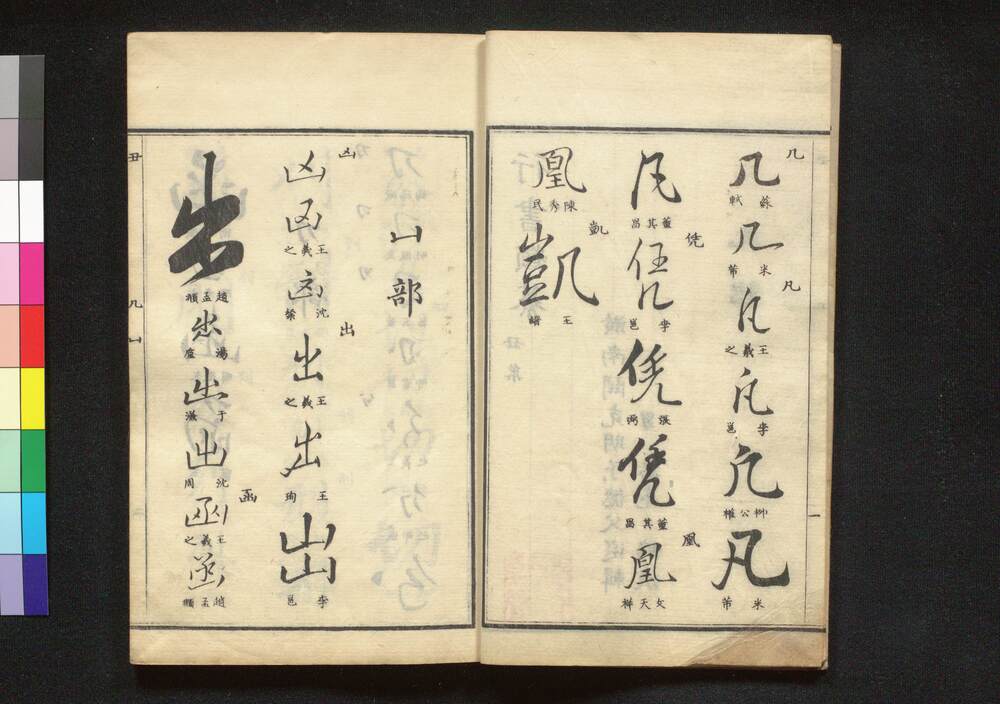 几
几
蘇軾
几
米芾
凡
凡
王羲之
凡
李邕
凡
柳公權
凡
米芾
凡
董其昌
凭
凭
李邕
凭
張弼
凭
董其昌
凰
凰
文天祥
凰
陳秀民
凱
凱
王
一
凵部
凶
凶
凶
王羲之
凶
沈粲
出
出
王羲之
出
王珣
出
李邕
出
趙孟頫
出
湯
出
于
出
沈周
函
函
王羲之
函
趙孟頫
丑
几凵